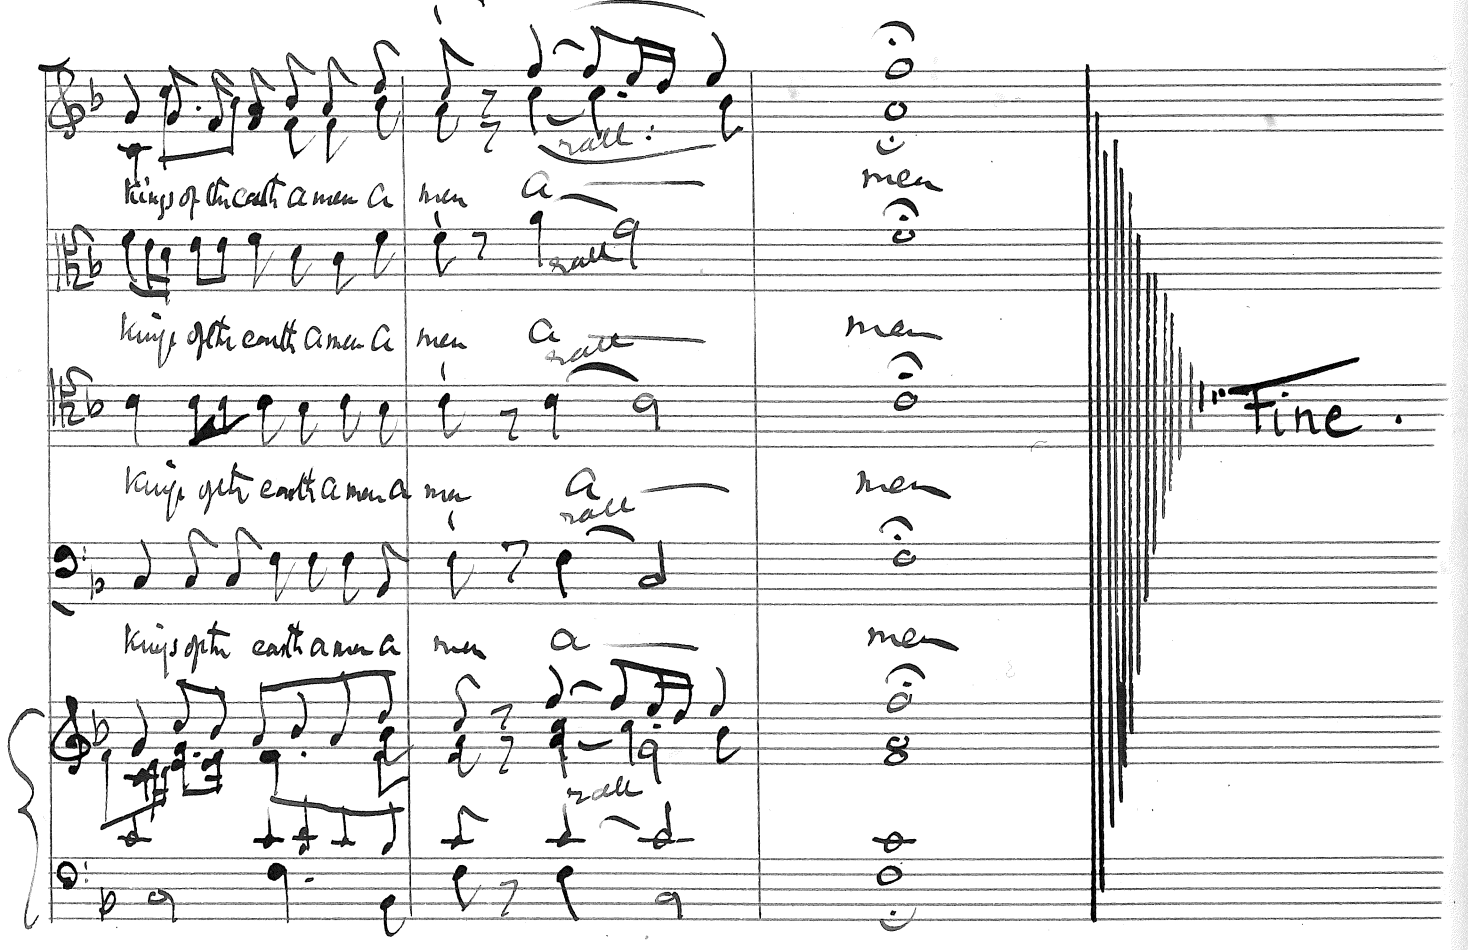 rall:
Kings of the earth a men a men a men
rall
Kings of the earth a men a men a men
rall
Fine.
Kings of the earth a men a men a men
rall
Kings of the earth a men a men a men
rall